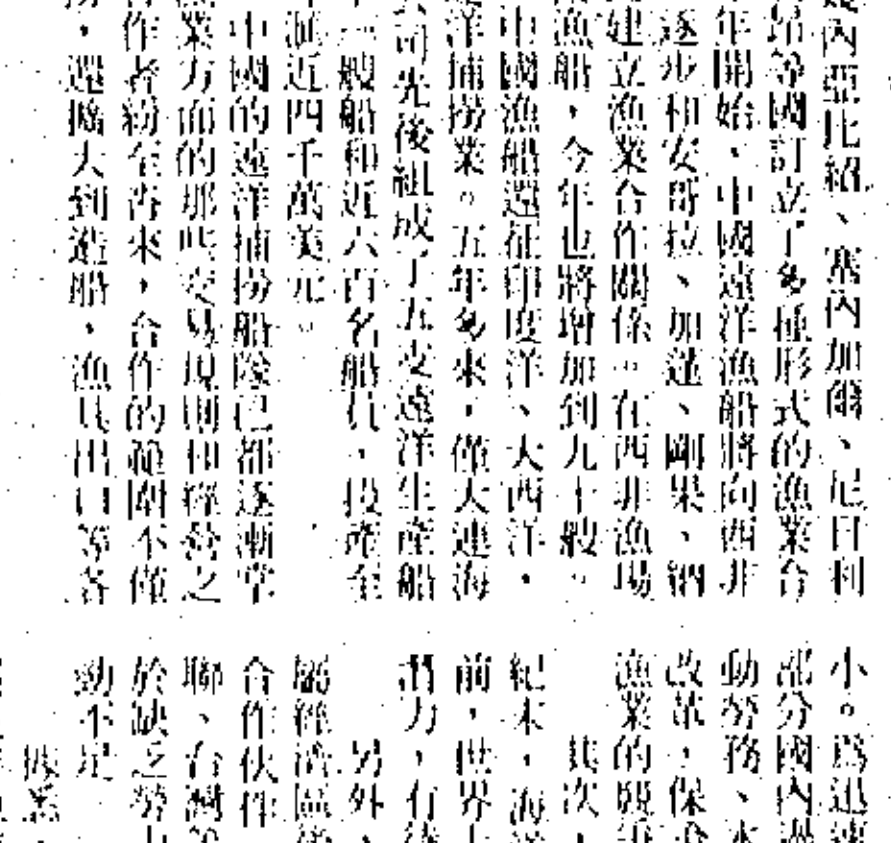 內亞比紹、塞內加爾、尼日利
昂等國訂立了多種形式的漁業合
年開始，中國遠洋漁船將向西非
逐步和安哥拉、加蓬、剛果、納
建立漁業合作關係。在西非漁場
漁船，今年也將增加到九十艘。
中國漁船還征印度洋、大西洋，
洋捕撈業。五年多來，僅大連海
司先後組成了五支遠洋生產船
一艘船和近六百名船員，投產至
匯近四千萬美元。
中國的遠洋捕撈船隊已都逐漸掌
業方面的那些交易規則和經營之
作者紛至沓來，合作的範圍不僅
，還擴大到造船，漁具出口等各
小。為迅速
部分國內過
動勞務、
改革，保
漁業的
其次，
紀末，海洋
前，世界
潛力，有待
另外，
屬經濟區
合作伙伴
聯、台灣等
於缺乏勞力
勁不足